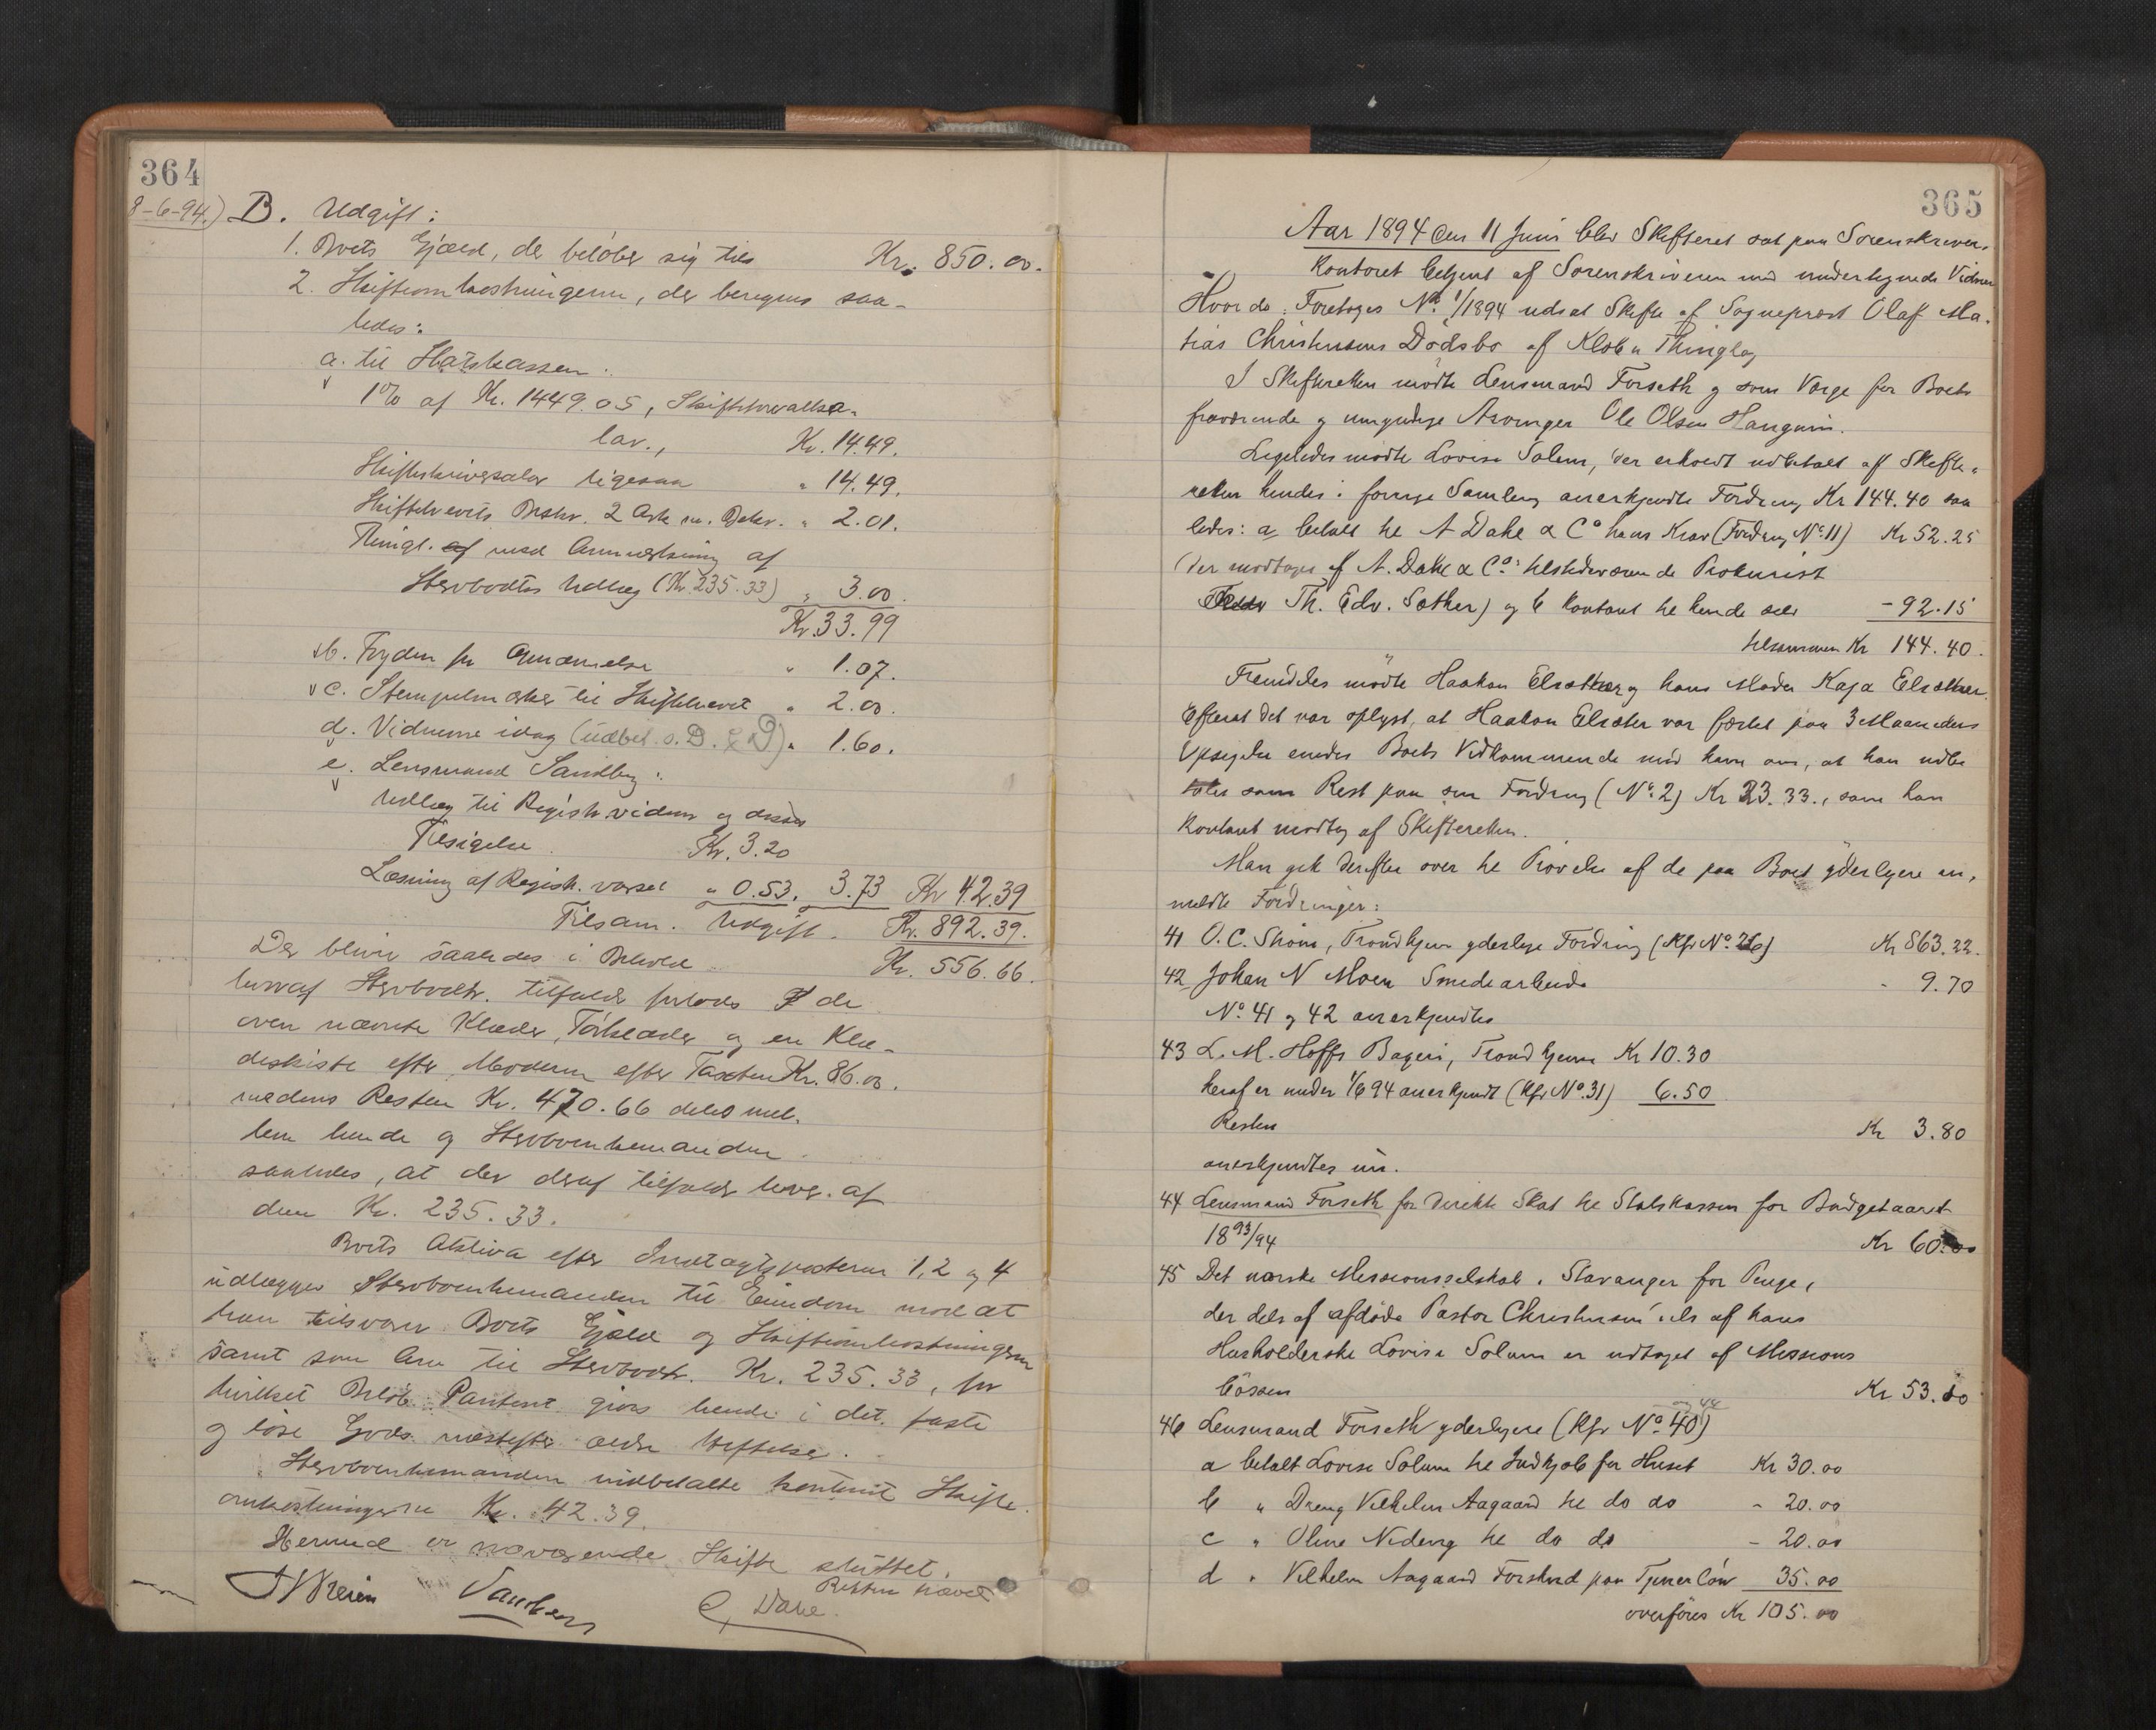 364
8-6-94.) B. Udgift:
1. Boets Gjæld, der beløber sig til Kr. 850.00.
2. Skifteomkostningerne, der beregnes saa-
ledes:
a. til Statskassen:
1% af Kr. 1449.05, Skifteforvaltersa-
lær., Kr. 14.49.
Skifteskriversalær ligesaa " 14.49.
Skiftebrevets Beskr. 2 Ark m. Dekr. " 2.01.
Thingl. af med Anmerkning af
Stervbodtrs Udlæg (Kr. 235.33) " 3.00.
Kr. 33.99
b. for Opnævnelse " 1.07.
c. Stempelmærker til Skiftebrevet " 2.00.
d. Vidnerne idag (udbet. s. D. " 1.60.
e. Lensmand Sandberg:
Udlæg til Registr. vidner og disses
Tilsigelse Kr. 3.20
Læsning af Registr. varsel " 0.53. 3.73 Kr 42.39
Tilsam. Udgift. Kr. 892.39.
Der bliver saaledes i Behold Kr. 556.66.
hvoraf Stervbodtr. tilfalder forlods de
oven nævnte Klæder, Tørklæder og en Klæ-
deskiste efter Moderen efter Taxten Kr. 86.00.
medens Resten Kr. 470.66 deles mel-
lem hende og Stervboenkemanden
saaledes, at der deraf tilfalder hver af
dem Kr. 235.33.
Boets Aktiva efter Indtægtsposterne 1, 2 og 4
udlægges Stervboenkemanden til Eiendom mod at
han tilsvarer Boets Gjæld og Skifteomkostningerne
samt som Arv til Stervbodtr. Kr. 235.33, for
hvilket Beløb Panteret gives hende i det faste
og løse Gods næstefter ældre Heftelser.
Stervboenkemanden indbetalte kontant Skifte-
omkostningerne Kr. 42.39.
Hermed er nærværende Skifte sluttet.
Retten hævet
Sandberg Dahl.
365
Aar 1894 den 11 Juni blev Skifteret sat paa Sorenskriver-
kontoret betjent af Sorenskriveren med undertegnede Vidner
Hvorda: Foretoges No. 1/1894 udsat Skifte af Sogneprest Olaf Ma-
tias Christensens Dødsbo af Klæbu Thinglag
I Skifteretten mødte Lensmand Forseth og som Værge for Boets
fraværende og umyndige Arvinger Ole Olsen Haugum.
Ligeledes mødte Lovise Solem, der erholdt udbetalt af Skifte-
retten hendes i forrige Samling anerkjendte Fordring Kr 144.40 saa
ledes: a betalt til A Dahl & Co hans Krav (Fordring No 11) Kr 52.25
(der modtages af A. Dahl & Co: tilstedeværende Prokurist
Th. Edv. Sæther) og b kontant til hende selv - 92.15
tilsammen Kr 144.40.
Fremdeles mødte Haakon Elsæther og hans Moder Kaja Elsæther.
Efterat det var oplyst, at Haakon Elsæter var fæstet paa 3 Maaneders
Opsigelse enedes Boets Vedkommende med ham om, at han udbe
tales som Rest paa sin Fordring (No 2) Kr 23.33., som han
kontant modtog af Skifteretten.
Man gik derefter over til Prøvelse af de paa Boet yderligere an-
meldte Fordringer:
41 O. C. Strøm, Trondhjem yderligere Fordring (Kfr No 26) Kr 863.22.
42 Johan N Moen Smedearbeide - 9.70
No 41 og 42 anerkjendtes
43 L. M. Hoffs Bageri, Trondhjem Kr 10.30
heraf er under 1/6 94 anerkjendt (Kfr No. 31) 6.50
Resten Kr 3.80
anerkjendtes nu.
44 Lensmand Forseth for direkte Skat til Statskassen for Budgetaaret
1893/94 Kr 60.00
45 Det norske Missionsselskab i Stavanger for Penge,
der dels af afdøde Pastor Christensen dels af hans
Husholderske Lovise Solem er udtaget af Missions
bøssen Kr 53.
og 44
46 Lensmand Forseth yderligere (Kfr No. 40)
a betalt Lovise Solem til Indkjøb for Huset Kr 30.00
b " Dreng Vilhelm Aagaard til do do - 20.00
c " Oline til do do - 20.00
d " Vilhelm Aagaard Forskud paa Tjenerløn 35.00
overføres Kr 105.00